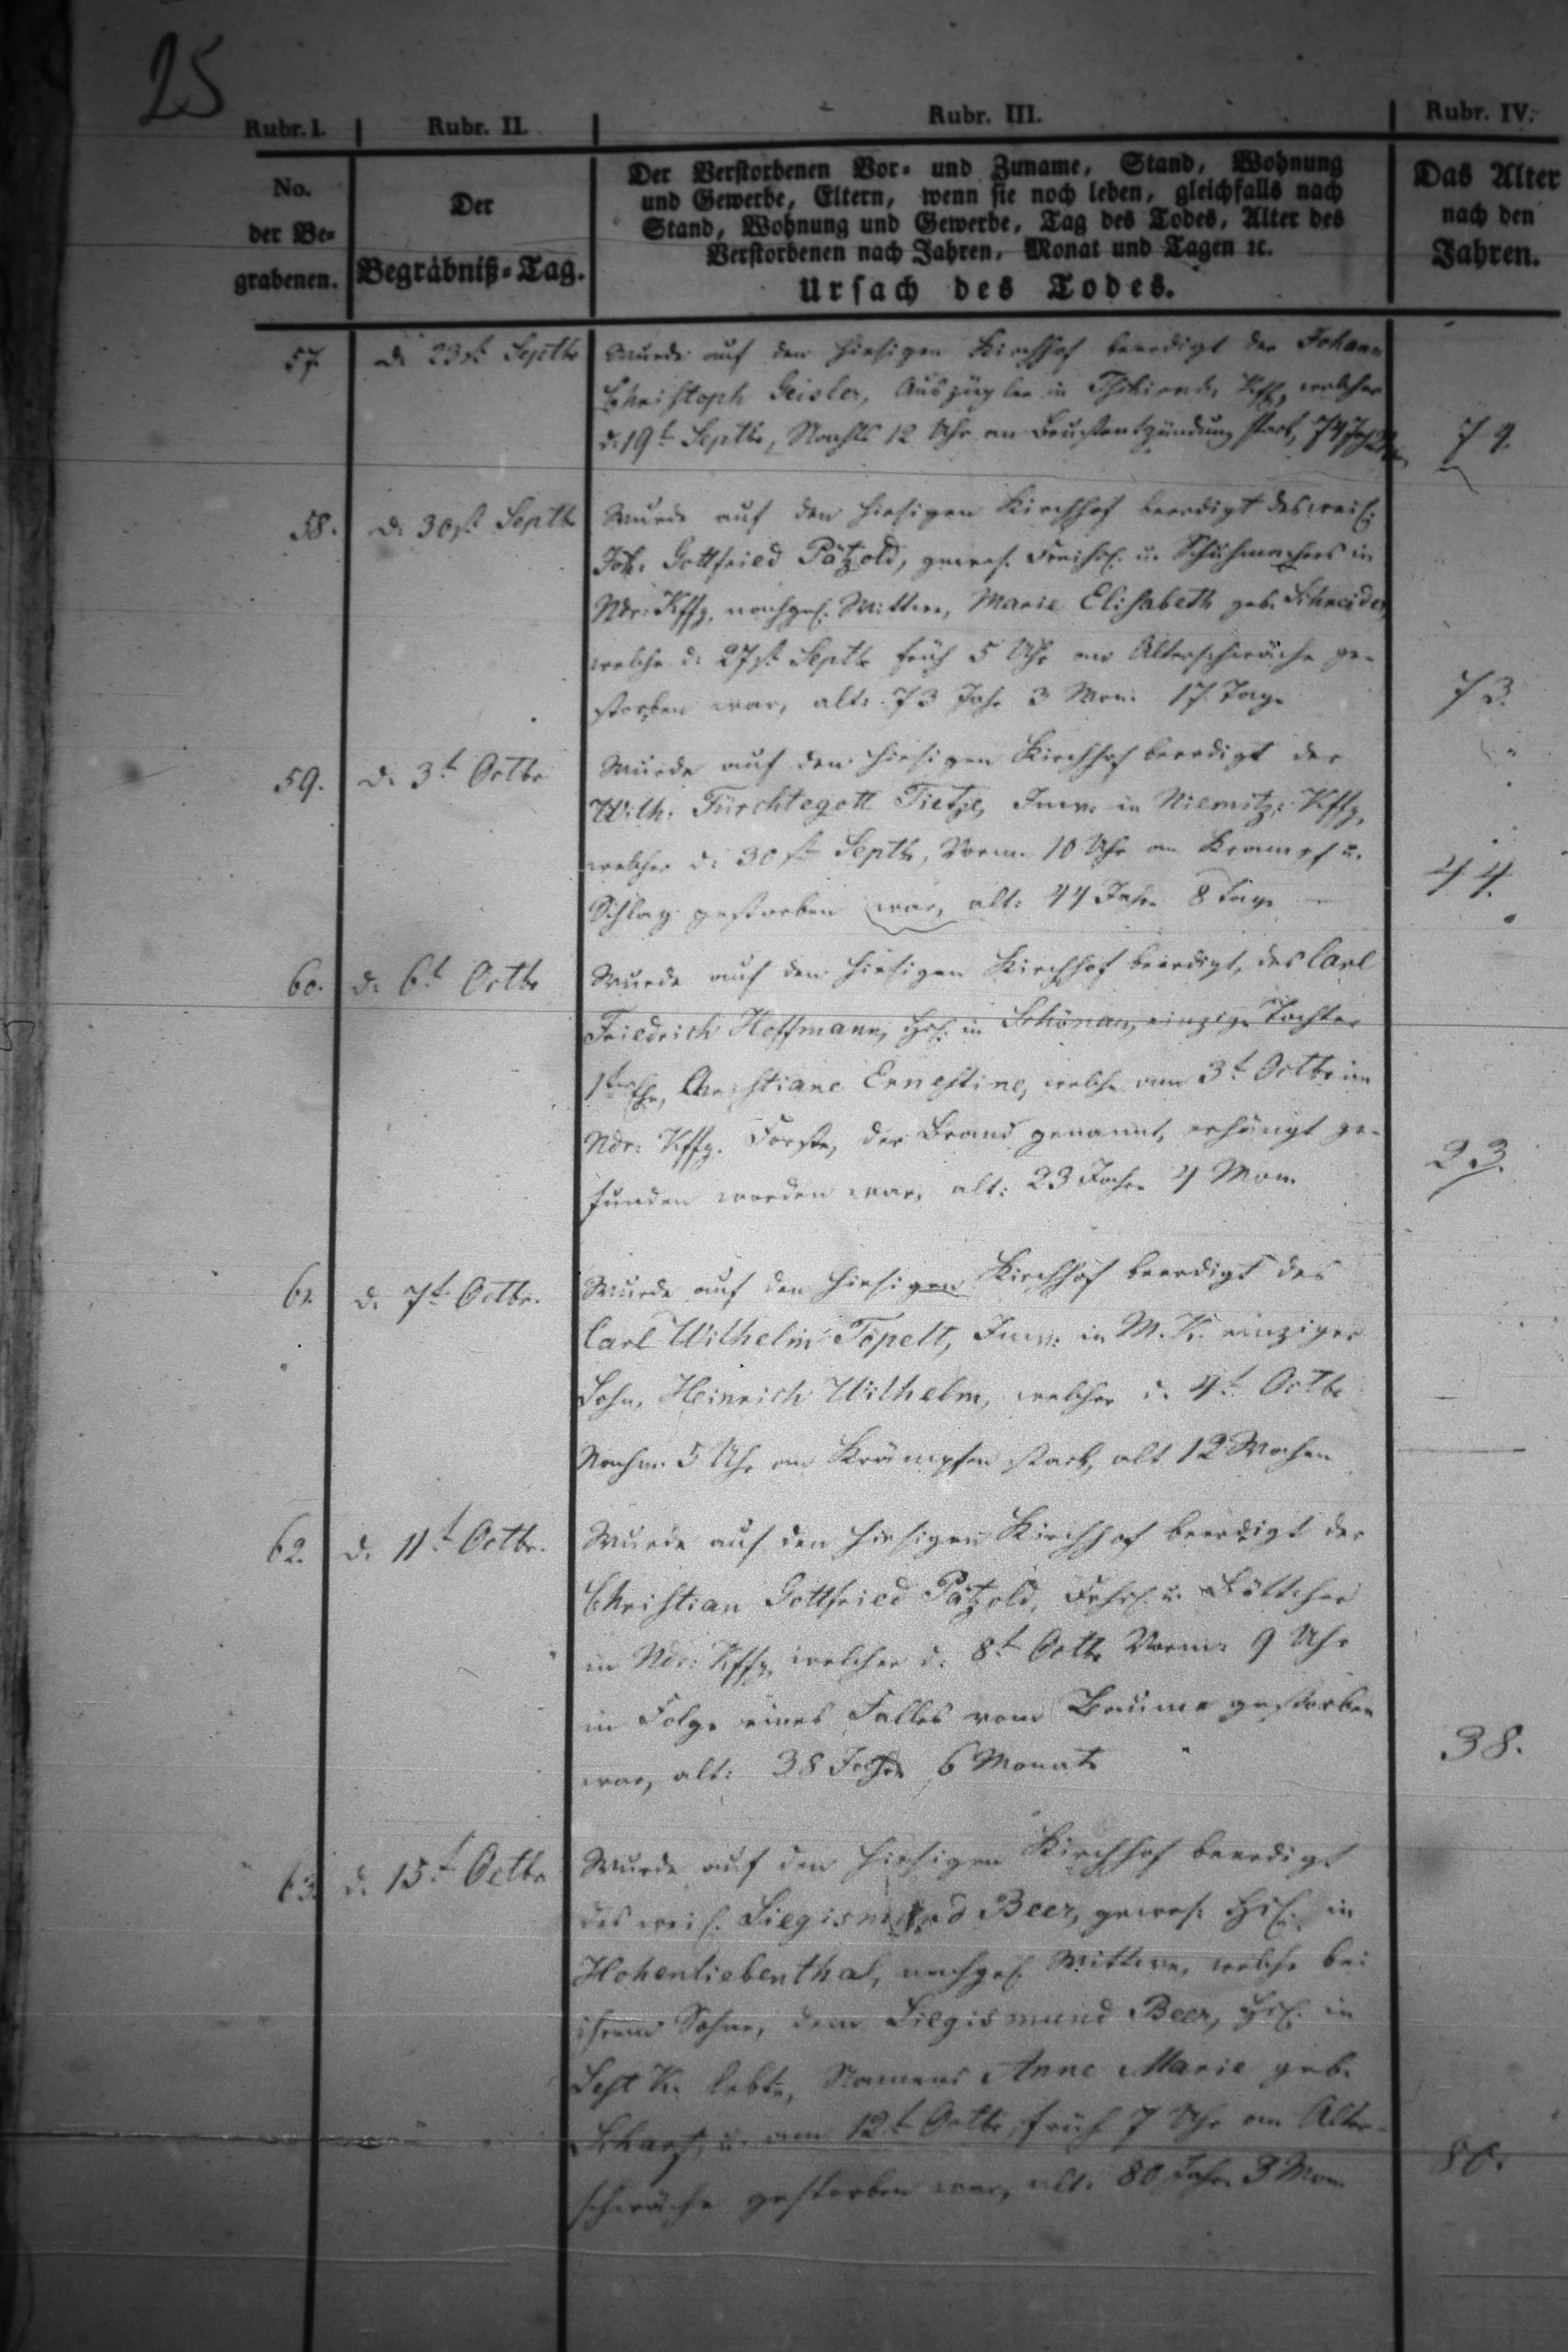 25
Rubr. I. Rubr. II. Rubr. III. Rubr. IV.
No. der Be-grabenen.
Der Begräbniß-Tag.
Der Verstorbenen Vor- und Zuname, Stand, Wohnung
und Gewerbe, Eltern, wenn sie noch leben, gleichfalls nach
Stand, Wohnung und Gewerbe, Tag des Todes, Alter des
Verstorbenen nach Jahren, Monat und Tagen ꝛc.
Ursach des Todes.
Das Alter
nach den
Jahren.
57. d. 23st Septbr Wurde auf den hiesigen Kirchhof beerdigt der Johann
Christoph Geisler, Auszügler in Kffg, welcher
d. 19t Septbr, Nachts 12 Uhr an Brustentzündung starb, 74 74.
58. d. 30st Septbr Wurde auf den hiesigen Kirchhof beerdigt des weil.
Joh. Gottfried Pätzold, gewes. Freihsl. u. Schuhmachers in
Ndr: Kffg, nachgel. Wittwe, Marie Elisabeth geb. Schneider,
welche d. 27st Septbr früh 5 Uhr an Altersschwäche ge-
storben war, alt: 73 Jahr 3 Mon: 17 Tage 73.
59. d. 3t Octbr Wurde auf den hiesigen Kirchhof beerdigt der
Wilh. Fürchtegott Tietze, Inw: in Niemitz: Kffg,
welcher d: 30st Septbr, Vorm. 10 Uhr an Krampf u.
Schlag gestorben war, alt: 44 Jahr 8 Tage 44.
60. d. 6t Octbr Wurde auf den hiesigen Kirchhof beerdigt, des Carl
Friedrich Hoffmann, Hsl: in Schönau, einzige Tochter
1ter Ehe, Christiane Ernestine, welche am 3t Octbr im
Ndr: Kffg. Forste, der Brand genannt, erhängt ge-
funden worden war, alt: 23 Jahr 4 Mon. 23.
61. d. 7t Octbr. Wurde auf den hiesigen Kirchhof beerdigt des
Carl Wilhelm Töpelt, Inw: in M. K. einziger
Sohn, Heinrich Wilhelm, welcher d. 4t Octbr
Nachm. 5 Uhr an Krämpfen starb, alt 12 Wochen
62. d. 11t Octbr. Wurde auf den hiesigen Kirchhof beerdigt der
Christian Gottfried Pätzold, Frhsl. u. Böttcher
in Ndr: Kffg, welcher d. 8t Octbr Vorm: 9 Uhr
in Folge eines Falles vom Baume gestorben
war, alt: 38 Jahr 6 Monate 38.
63. d. 15t Octbr Wurde auf den hiesigen Kirchhof beerdigt
des weil. Siegismund Beer, gewes. Hsl. in
Hohenliebenthal, nachgel. Wittwe, welche bei
ihrem Sohne, dem Siegismund Beer, Hsl. in
K. lebte, Namens Anne Marie geb.
Scharf, u. am 12t Octbr, früh 7 Uhr an Alter-
schwäche gestorben war, alt. 80 Jahr 3 Mon 80.